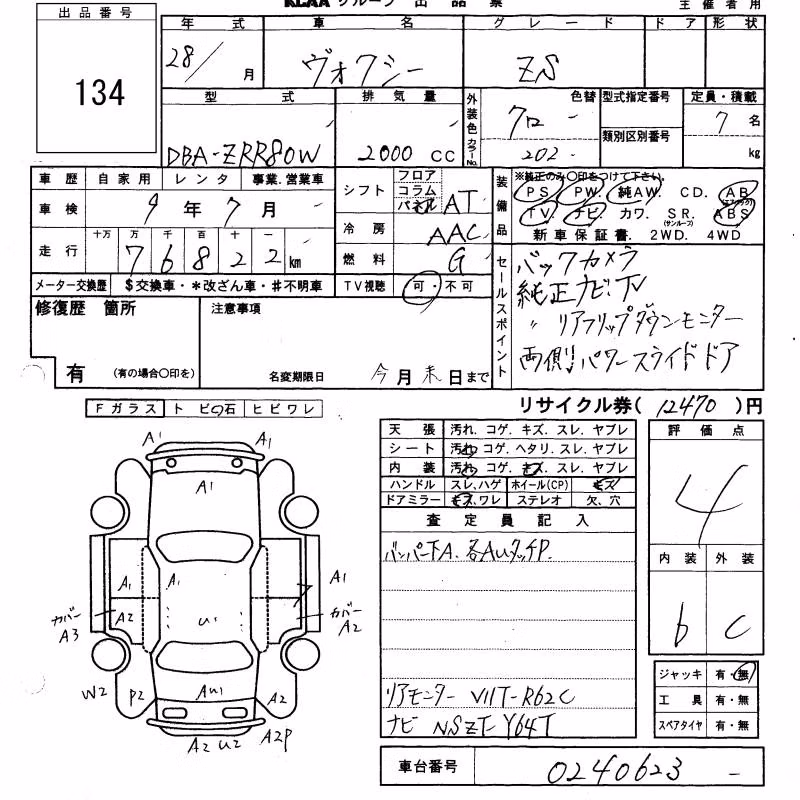 KCAA グループ 出 品 票
主 催 者 用
出 品 番 号
134
年 式 車 名 グ レ ー ド ド ア 形 状
28/ 月 ヴォクシー ZS
型 式 排 気 量 外装色 色替 型式指定番号 定員・積載
DBA-ZRR80W 2000 CC クロ カラーNo. 202 類別区別番号 7 名
kg
車 歴 自 家 用 レ ン タ 事業.営業車
車 検 9 年 7 月
走 行 十万 万 千 百 十 一
7 6 8 2 2 km
メーター交換歴 $交換車・*改ざん車・#不明車
シフト フロア コラム パネル AT
冷 房 AAC
燃 料 G
TV視聴 可・不可
装備品 ※純正のみ〇印をつけて下さい。
PS PW. 純AW. CD. AB (エアバック)
TV. ナビ カワ. SR. (サンルーフ) ABS
新 車 保 証 書. 2WD. 4WD
セールスポイント
バックカメラ
純正ナビ.TV
〃 リアフリップダウンモニター
両側パワースライドドア
修復歴 箇所
有 (有の場合〇印を)
注意事項
名変期限日 今 月 末 日 まで
リサイクル券( 12470 )円
F ガ ラ ス ト ビ 石 ヒ ビ ワ レ
天 張 汚れ. コゲ. キズ. スレ. ヤブレ
シート 汚れ コゲ. ヘタリ. スレ. ヤブレ
内 装 汚れ コゲ. キズ. スレ. ヤブレ
ハンドル スレ,ハゲ ホイール(CP) キズ
ドアミラー キズ,ワレ ステレオ 欠、穴
査 定 員 記 入
バンパー下A. 各AUタッチP.
リアモニター V11T-R62C
ナビ NSZT-Y64T
評 価 点
4
内 装 外 装
b C
ジャッキ 有・無
工 具 有・無
スペアタイヤ 有・無
車台番号 0240623
A1 A1
A1
A1 A1 A1
カバー A3 A2 U1 カバー A2
W2 P2 AU1 A2
A2 U2 A2P